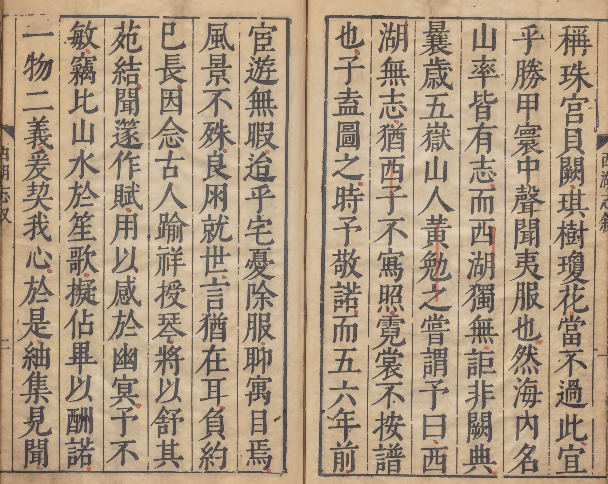 稱珠宮貝闕琪樹瓊花當不過此宜
乎勝甲寰中聲聞夷服也然海內名
山率皆有志而西湖獨無詎非闕典
曩歲五嶽山人黃勉之嘗謂予曰西
湖無志猶西子不寫照霓裳不按譜
也子盍圖之時予敬諾而五六年前
宦遊無暇迨乎宅憂除服聊寓目焉
風景不殊良朋就世言猶在耳負約
已長因念古人踰祥授琴將以舒其
苑結聞篴作賦用以感於幽冥予不
敏竊比山水於笙歌擬佔畢以酬諾
一物二義爰契我心於是紬集見聞